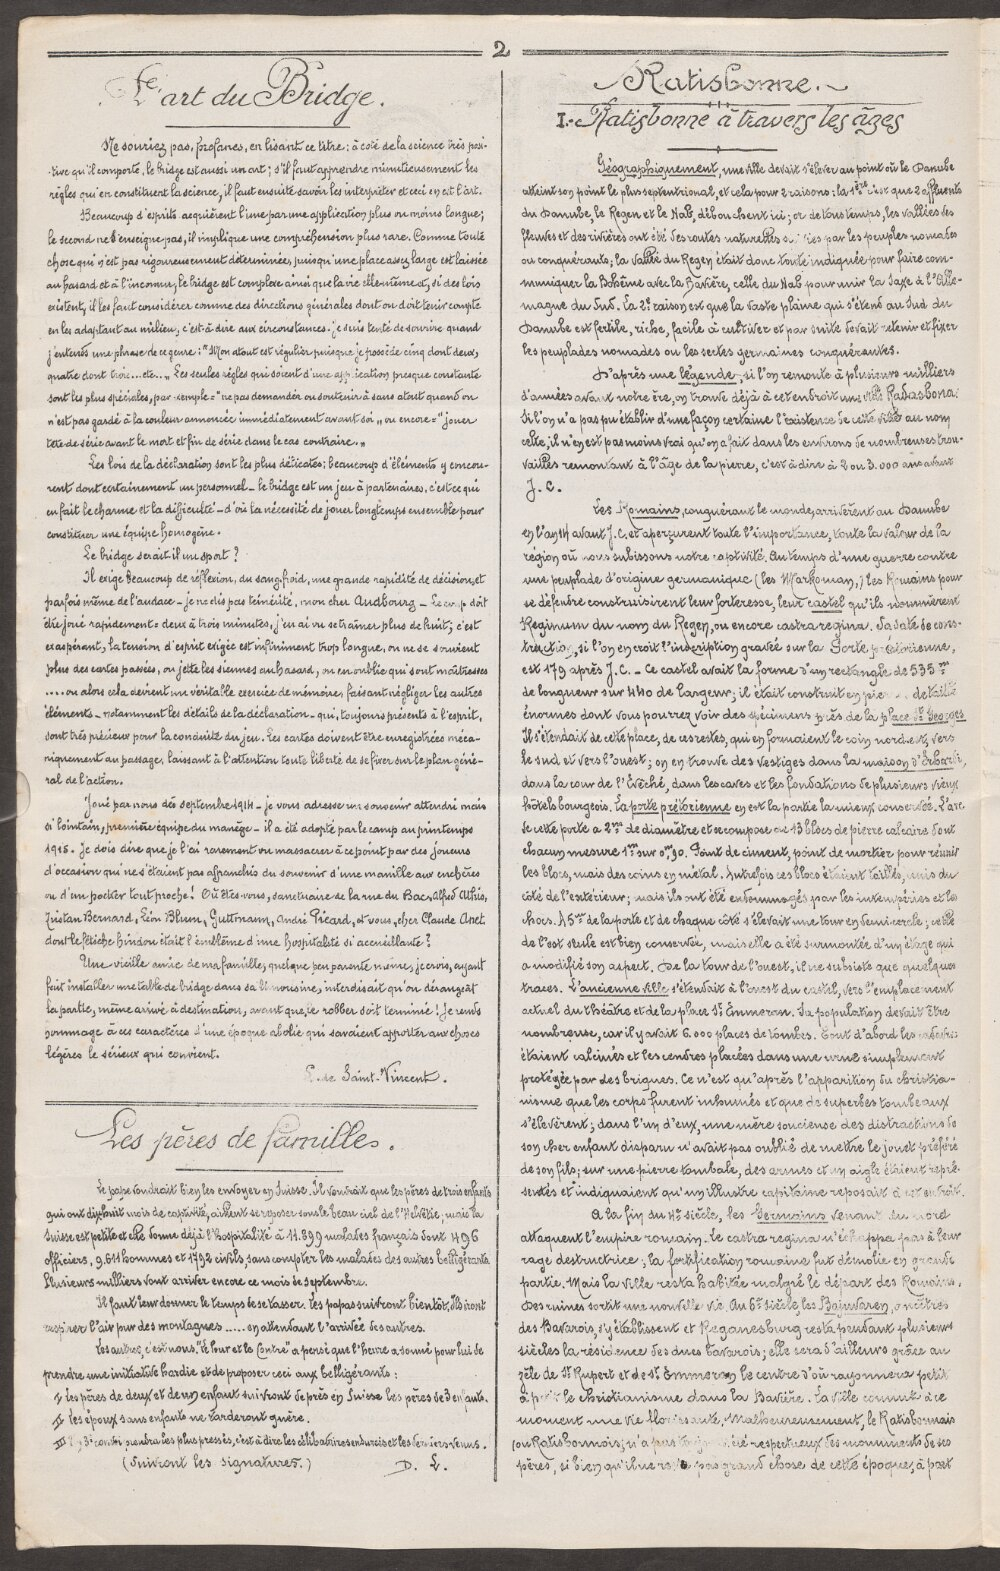 2
L'art du Bridge.
Ne souriez pas, profanes, en lisant ce titre : à côté de la science très posi-
tive qu'il comporte, le bridge est aussi un art ; s'il faut apprendre minutieusement les
règles qui en constituent la science, il faut ensuite savoir les interpréter et ceci en est l'art.
Beaucoup d'esprits acquièrent l'une par une application plus ou moins longue ;
le second ne s'enseigne pas, il implique une compréhension plus rare. Comme toute
chose qui n'est pas rigoureusement déterminée, puisqu'une place assez large est laissée
au hasard et à l'inconnu, le bridge est complexe ainsi que la vie elle-même et, si des lois
existent, il les faut considérer comme des directions générales dont on doit tenir compte
en les adaptant au milieu, c'est à dire aux circonstances. je suis tenté de sourire quand
j'entends une phrase de ce genre : "Mon atout est régulier puisque je possède cinq dont deux,
quatre dont trois...etc..." Les seules règles qui soient d'une application presque constante
sont les plus spéciales, par exemple = "ne pas demander ou soutenir à sans atout quand on
n'est pas gardé à la couleur annoncée immédiatement avant soi" ou encore = "jouer
tête de série avant le mort et fin de série dans le cas contraire."
Les lois de la déclaration sont les plus délicates ; beaucoup d'éléments y concou-
rent dont certainement un personnel - le bridge est un jeu à partenaires, c'est ce qui
en fait le charme et la difficulté - d'où la nécessité de jouer longtemps ensemble pour
constituer une équipe homogène.
Le bridge serait-il un sport ?
Il exige beaucoup de réflexion, du sang froid, une grande rapidité de décision, et
parfois même de l'audace - je ne dis pas témérité, mon cher Audbourg - Le coup doit
être joué rapidement = deux à trois minutes, j'en ai vu se traîner plus de huit ; c'est
exaspérant, la tension d'esprit exigée est infiniment trop longue, on ne se souvient
plus des cartes passées, on jette les siennes au hasard, ou en oublie qui sont maîtresses
.... ou alors cela devient un véritable exercice de mémoire, faisant négliger les autres
éléments - notamment les détails de la déclaration - qui, toujours présents à l'esprit,
sont très précieux pour la conduite du jeu. Les cartes doivent être enregistrées méca-
niquement au passage, laissant à l'attention toute liberté de se fixer sur le plan géné-
ral de l'action.
Joué par nous dès septembre 1914 - je vous adresse un souvenir attendri mais
si lointain, première équipe du manège - il a été adopté par le camp au printemps
1915. Je dois dire que je l'ai rarement vu massacrer à ce point par des joueurs
d'occasion qui ne s'étaient pas affranchis du souvenir d'une manille aux enchères
ou d'un pocker tout proche ! Où êtes-vous, sanctuaire de la rue du Bac, Alfred Athis,
Tristan Bernard, Léon Blum, Guttmann, André Picard, et vous, cher Claude Anet
dont le fétiche hindou était l'emblème d'une hospitalité si accueillante ?
Une vieille amie de ma famille, quelque peu parente même, je crois, ayant
fait installer une table de bridge dans sa limousine, interdisait qu'on dérangeât
la partie, même arrivé à destination, avant que le robber soit terminé ! Je rends
hommage à ces caractères d'une époque abolie qui savaient apporter aux choses
légères le sérieux qui convient.
P. de Saint-Vincent.
Les pères de famille.
Le pape voudrait bien les envoyer en Suisse. Il voudrait que les pères de trois enfants
qui ont dix-huit mois de captivité, aillent se reposer sous le beau ciel de l'Helvétie ; mais la
Suisse est petite et elle donne déjà l'hospitalité à 11.899 malades français dont 496
officiers, 9.611 hommes et 1792 civils, sans compter les malades des autres belligérants.
Plusieurs milliers vont arriver encore ce mois de septembre.
Il faut leur donner le temps de se tasser. les papas suivront bientôt, ils iront
respirer l'air pur des montagnes ..... en attendant l'arrivée des autres.
Les autres, c'est nous. "Le Pour et le Contre" a pensé que l'heure a sonné pour lui de
prendre une initiative hardie et de proposer ceci aux belligérants :
I les pères de deux et de un enfant suivront de près en Suisse les pères de 3 enfants.
II les époux sans enfants ne tarderont guère.
III le 3e convoi prendra les plus pressés, c'est à dire les célibataires endurcis et les derniers venus.
(Suivront les signatures.) D. L.
Ratisbonne.
I.- Ratisbonne à travers les âges
Géographiquement, une ville devait s'élever au point où le Danube
atteint son point le plus septentrional, et cela pour 2 raisons : la 1ère c'est que 2 affluents
du Danube, le Regen et le Nab, débouchent ici ; or de tous temps, les vallées des
fleuves et des rivières ont été des routes naturelles suivies par les peuples nomades
ou conquérants ; la vallée du Regen était donc toute indiquée pour faire com-
muniquer la Bohême avec la Bavière, celle du Nab pour unir la Saxe à l'Alle-
magne du Sud. La 2e raison est que la vaste plaine qui s'étend au Sud du
Danube est fertile, riche, facile à cultiver et par suite devait retenir et fixer
les peuplades nomades ou les sectes germaines conquérantes.
D'après une légende, si l'on remonte à plusieurs milliers
d'années avant notre ère, on trouve déjà à cet endroit une ville Radasbona.
Si l'on n'a pas pu établir d'une façon certaine l'existence de cette ville au nom
celte, il n'en est pas moins vrai qu'on a fait dans les environs de nombreuses trou-
vailles remontant à l'âge de la pierre, c'est à dire à 2 ou 3.000 ans avant
J. C.
Les Romains, conquérant le monde, arrivèrent au Danube
en l'an 14 avant J. C. et aperçurent toute l'importance, toute la valeur de la
région où nous subissons notre captivité. Au temps d'une guerre contre
une peuplade d'origine germanique (les Markoman,) les Romains pour
se défendre construisirent leur forteresse, leur castel qu'ils nommèrent
Reginum du nom du Regen, ou encore castra regina. Sa date de cons-
truction, si l'on en croit l'inscription gravée sur la Porte prétorienne,
est 179 après J. C. - Ce castel avait la forme d'un rectangle de 535 m
de longueur sur 440 de largeur ; il était construit en pierres de taille
énormes dont vous pourrez voir des spécimens près de la place St Georges.
Il s'étendait de cette place, de ces restes, qui en formaient le coin nord-est, vers
le sud et vers l'ouest ; on en trouve des vestiges dans la maison d'Erhardi,
dans la cour de l'Evêché, dans les caves et les fondations de plusieurs vieux
hôtels bourgeois. La porte prétorienne en est la partie la mieux conservée. L'arc
de cette porte a 2m de diamètre et se compose de 13 blocs de pierre calcaire dont
chacun mesure 1m sur 0m90. Point de ciment, point de mortier pour réunir
les blocs, mais des coins en métal. Autrefois ces blocs étaient taillés, unis du
côté de l'extérieur ; mais ils ont été endommagés par les intempéries et les
chocs. A 5m de la porte et de chaque côté s'élevait une tour en demi-cercle ; celle
de l'est seule est bien conservée, mais elle a été surmontée d'un étage qui
a modifié son aspect. De la tour de l'ouest, il ne subsiste que quelques
traces. L'ancienne ville s'étendait à l'ouest du castel, vers l'emplacement
actuel du théâtre et de la place St Emmeran. Sa population devait être
nombreuse, car il y avait 6.000 places de tombes. Tout d'abord les cadavres
étaient calcinés et les cendres placées dans une urne simplement
protégée par des briques. Ce n'est qu'après l'apparition du christia-
nisme que les corps furent inhumés et que de superbes tombeaux
s'élevèrent ; dans l'un d'eux, une mère soucieuse des distractions de
son cher enfant disparu n'avait pas oublié de mettre le jouet préféré
de son fils ; sur une pierre tombale, des armes et un aigle étaient repré-
sentés et indiquaient qu'un illustre capitaine reposait à cet endroit.
A la fin du 4me siècle, les Germains venant du nord
attaquent l'empire romain. Le castra regina n'échappa pas à leur
rage destructrice ; la fortification romaine fut démolie en grande
partie. Mais la ville resta habitée malgré le départ des Romains.
Des ruines sortit une nouvelle vie. Au 6e siècle les Bajuvaren, ancêtres
des Bavarois, s'y établissent et Reganesburg resta pendant plusieurs
siècles la résidence des ducs bavarois ; elle sera d'ailleurs grâce au
zèle de St Rupert et de St Emmeran le centre d'où rayonnera petit
à petit le christianisme dans la Bavière. La ville connut à ce
moment une vie florissante. Malheureusement, le Ratisbonnais
(ou Ratisbonnois) n'a pas toujours été respectueux des monuments de ses
pères, si bien qu'il ne reste pas grand chose de cette époque, à part